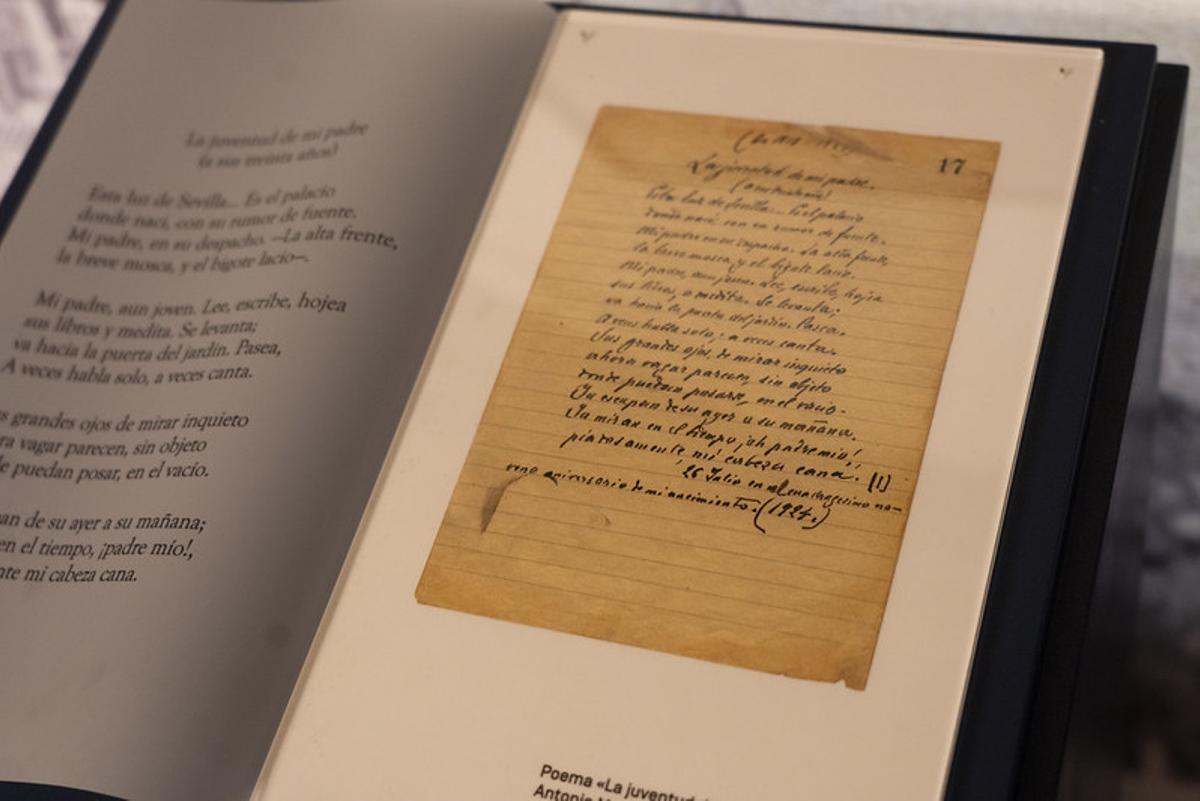 La juventud de mi padre
(a sus treinta años)
Esta luz de Sevilla... Es el palacio
donde nací, con su rumor de fuente.
Mi padre, en su despacho. —La alta frente,
la breve mosca, y el bigote lacio—.
Mi padre, aun joven. Lee, escribe, hojea
sus libros y medita. Se levanta;
va hacia la puerta del jardín. Pasea,
A veces habla solo, a veces canta.
grandes ojos de mirar inquieto
vagar parecen, sin objeto
puedan posar, en el vacío.
de su ayer a su mañana;
en el tiempo, ¡padre mío!,
mi cabeza cana.
17
La juventud de mi padre.
Esta luz de Sevilla... Es el palacio
donde nací con su rumor de fuente.
Mi padre en su despacho. La alta frente,
la breve mosca, y el bigote lacio.
Mi padre, aun joven. Lee, escribe, hojea
sus libros, o medita. Se levanta;
va hacia la puerta del jardín. Pasea.
A veces habla solo, a veces canta.
Sus grandes ojos, de mirar inquieto
ahora vagar parecen, sin objeto
donde puedan posarse, en el vacio.
Ya escapan de su ayer a su mañana.
Ya miran en el tiempo ¡oh padre mio!
piadosamente mi cabeza cana. (1)
26 Julio en el no-
veno aniversario de mi nacimiento. (1924.)
Poema «La juventud
Antonio